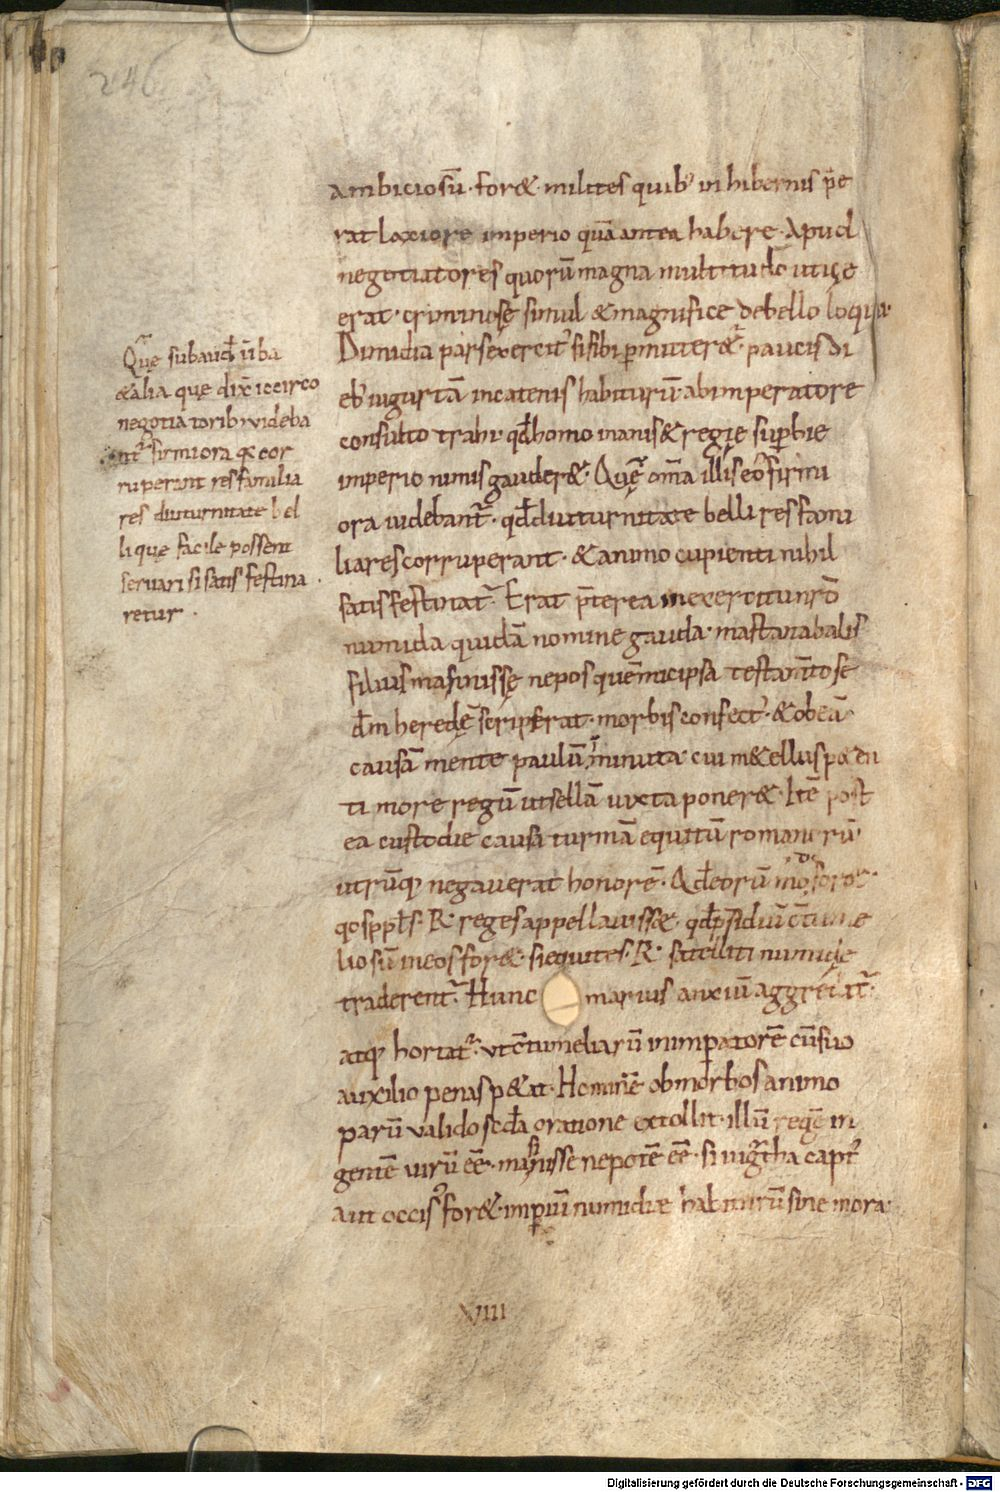 246
ambiciosū· for& milites quib; in hibernis p̄e
rat laxiore imperio quā antea habere· Apud
negotiatores quorū magna multitudo uticę
erat· criminosę simul & magnifice de bello loqui·
Dimidia pars exercit᷒ si sibi ꝑmitter&᷑ paucis di
eb; iugurtā in catenis habiturū· ab imperatore
consulto trahi· qđ homo inanis & regię suꝑbie
imperio nimis gauder&· Quę om̄a illis eo firmi
ora uidebant᷑· qđ diuturnitate belli res fami
liares corruperant· & animo cupienti nihil
satis festinat᷑· Erat p̄terea in exercitu nr̄o
numida quidā nomine gauda· mastanabalis
filius masinissę nepos quē micipsa testam̄to se
cđm heredē scripserat· morbis confect᷒· & ob eā
causā mente paulū inminuta· cui m&ellus p&en
ti more regū ut sellā iuxta poner&· Itē post
ea custodie causa turmā equitū romanorū
utrūq; negauerat honorē·
qos ppłs· R· reges appellauiss&·
lio sū in eos for&· si equites· R· satelliti numidę
traderent᷑· Hunc marius anxiū aggredit᷑·
atq; hortat᷑· ut ꝯtumeliarū in imꝑatorē cū suo
auxilio penas p&at· Hominē ob morbos animo
parū ualido secđa oratione extollit· illū regē in
gentē uirū eē· masinisse nepotē eē· si iug᷑tha capt᷒
aut occis᷒ for&· imꝑiū numidiæ habiturū sine mora·
Quę subaudˉ ūba
& alia que dix̄ iccirco
negotiatorib; uideba
nt᷑ firmiora qꝫ cor
ruperant res familia
res diuturnitate bel
li quę facile possent
seruari si satis festina
retur·
VIIII
Digitalisierung gefördert durch die Deutsche Forschungsgemeinschaft - DFG